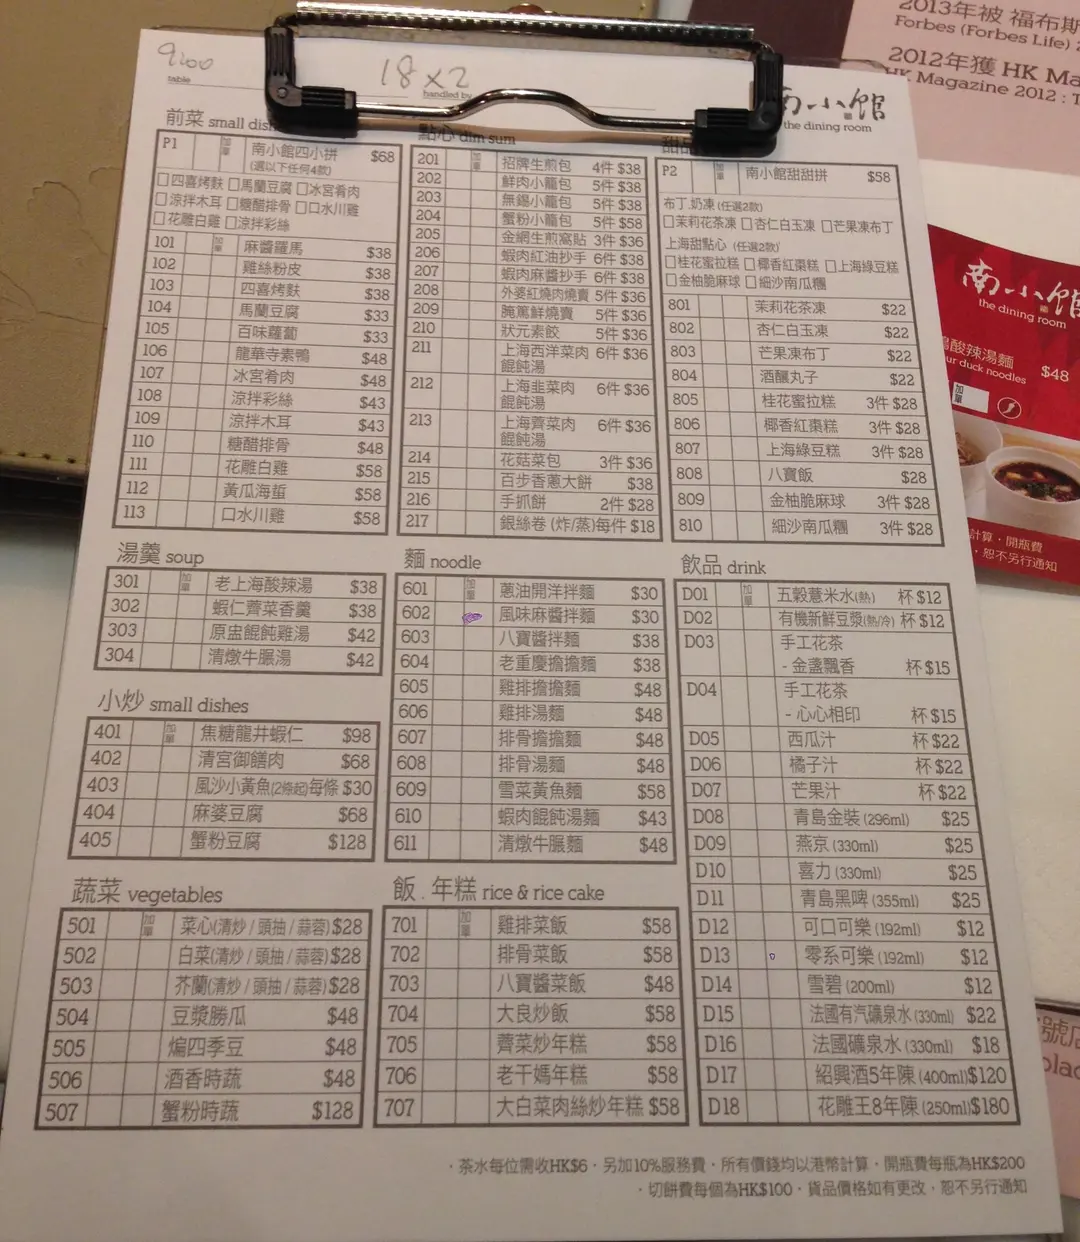 9:00
table
18 x 2
handled by
南小館
the dining room
前菜 small dish
P1 加單 南小館四小拼 $68
(選以下任何4款)
□四喜烤麩 □馬蘭豆腐 □冰宮肴肉
□涼拌木耳 □糖醋排骨 □口水川雞
□花雕白雞 □涼拌彩絲
101 加單 麻醬羅馬 $38
102 雞絲粉皮 $38
103 四喜烤麩 $38
104 馬蘭豆腐 $33
105 百味蘿蔔 $33
106 龍華寺素鴨 $48
107 冰宮肴肉 $48
108 涼拌彩絲 $43
109 涼拌木耳 $43
110 糖醋排骨 $48
111 花雕白雞 $58
112 黃瓜海蜇 $58
113 口水川雞 $58
點心 dim sum
201 加單 招牌生煎包 4件 $38
202 鮮肉小籠包 5件 $38
203 無錫小籠包 5件 $38
204 蟹粉小籠包 5件 $58
205 金網生煎窩貼 3件 $36
206 蝦肉紅油抄手 6件 $38
207 蝦肉麻醬抄手 6件 $38
208 外婆紅燒肉燒賣 5件 $36
209 腌篤鮮燒賣 5件 $36
210 狀元素餃 5件 $36
211 上海西洋菜肉 6件 $36
餛飩湯
212 上海韭菜肉 6件 $36
餛飩湯
213 上海薺菜肉 6件 $36
餛飩湯
214 花菇菜包 3件 $36
215 百步香蔥大餅 $38
216 手抓餅 2件 $28
217 銀絲卷 (炸/蒸)每件 $18
甜品
P2 加單 南小館甜甜拼 $58
布丁.奶凍 (任選2款)
□茉莉花茶凍 □杏仁白玉凍 □芒果凍布丁
上海甜點心 (任選2款)
□桂花蜜拉糕 □椰香紅棗糕 □上海綠豆糕
□金柚脆麻球 □細沙南瓜糰
801 茉莉花茶凍 $22
802 杏仁白玉凍 $22
803 芒果凍布丁 $22
804 酒釀丸子 $22
805 桂花蜜拉糕 3件 $28
806 椰香紅棗糕 3件 $28
807 上海綠豆糕 3件 $28
808 八寶飯 $28
809 金柚脆麻球 3件 $28
810 細沙南瓜糰 3件 $28
湯羹 soup
301 加單 老上海酸辣湯 $38
302 蝦仁薺菜香羹 $38
303 原盅餛飩雞湯 $42
304 清燉牛腒湯 $42
小炒 small dishes
401 加單 焦糖龍井蝦仁 $98
402 清宮御饍肉 $68
403 風沙小黃魚(2條起)每條 $30
404 麻婆豆腐 $68
405 蟹粉豆腐 $128
蔬菜 vegetables
501 加單 菜心(清炒 / 頭抽 / 蒜蓉) $28
502 白菜(清炒 / 頭抽 / 蒜蓉) $28
503 芥蘭(清炒 / 頭抽 / 蒜蓉) $28
504 豆漿勝瓜 $48
505 煸四季豆 $48
506 酒香時蔬 $48
507 蟹粉時蔬 $128
麵 noodle
601 加單 蔥油開洋拌麵 $30
602 風味麻醬拌麵 $30
603 八寶醬拌麵 $38
604 老重慶擔擔麵 $38
605 雞排擔擔麵 $48
606 雞排湯麵 $48
607 排骨擔擔麵 $48
608 排骨湯麵 $48
609 雪菜黃魚麵 $58
610 蝦肉餛飩湯麵 $43
611 清燉牛腒麵 $48
飯 . 年糕 rice & rice cake
701 加單 雞排菜飯 $58
702 排骨菜飯 $58
703 八寶醬菜飯 $48
704 大良炒飯 $58
705 薺菜炒年糕 $58
706 老干媽年糕 $58
707 大白菜肉絲炒年糕 $58
飲品 drink
D01 加單 五穀薏米水(熱) 杯 $12
D02 有機新鮮豆漿(熱/冷) 杯 $12
D03 手工花茶
- 金盞飄香 杯 $15
D04 手工花茶
- 心心相印 杯 $15
D05 西瓜汁 杯 $22
D06 橘子汁 杯 $22
D07 芒果汁 杯 $22
D08 青島金裝 (296ml) $25
D09 燕京 (330ml) $25
D10 喜力 (330ml) $25
D11 青島黑啤 (355ml) $25
D12 可口可樂 (192ml) $12
D13 零系可樂 (192ml) $12
D14 雪碧 (200ml) $12
D15 法國有汽礦泉水 (330ml) $22
D16 法國礦泉水 (330ml) $18
D17 紹興酒5年陳 (400ml) $120
D18 花雕王8年陳 (250ml) $180
· 茶水每位需收HK$6 · 另加10%服務費 · 所有價錢均以港幣計算 · 開瓶費每瓶為HK$200
· 切餅費每個為HK$100 · 貨品價格如有更改 · 恕不另行通知
2013年被 福布斯
Forbes (Forbes Life)
2012年獲 HK Ma
HK Magazine 2012 : T
南小館
the dining room
酸辣湯麵
ur duck noodles $48
加單
計算 · 開瓶費
· 恕不另行通知
號店
plac